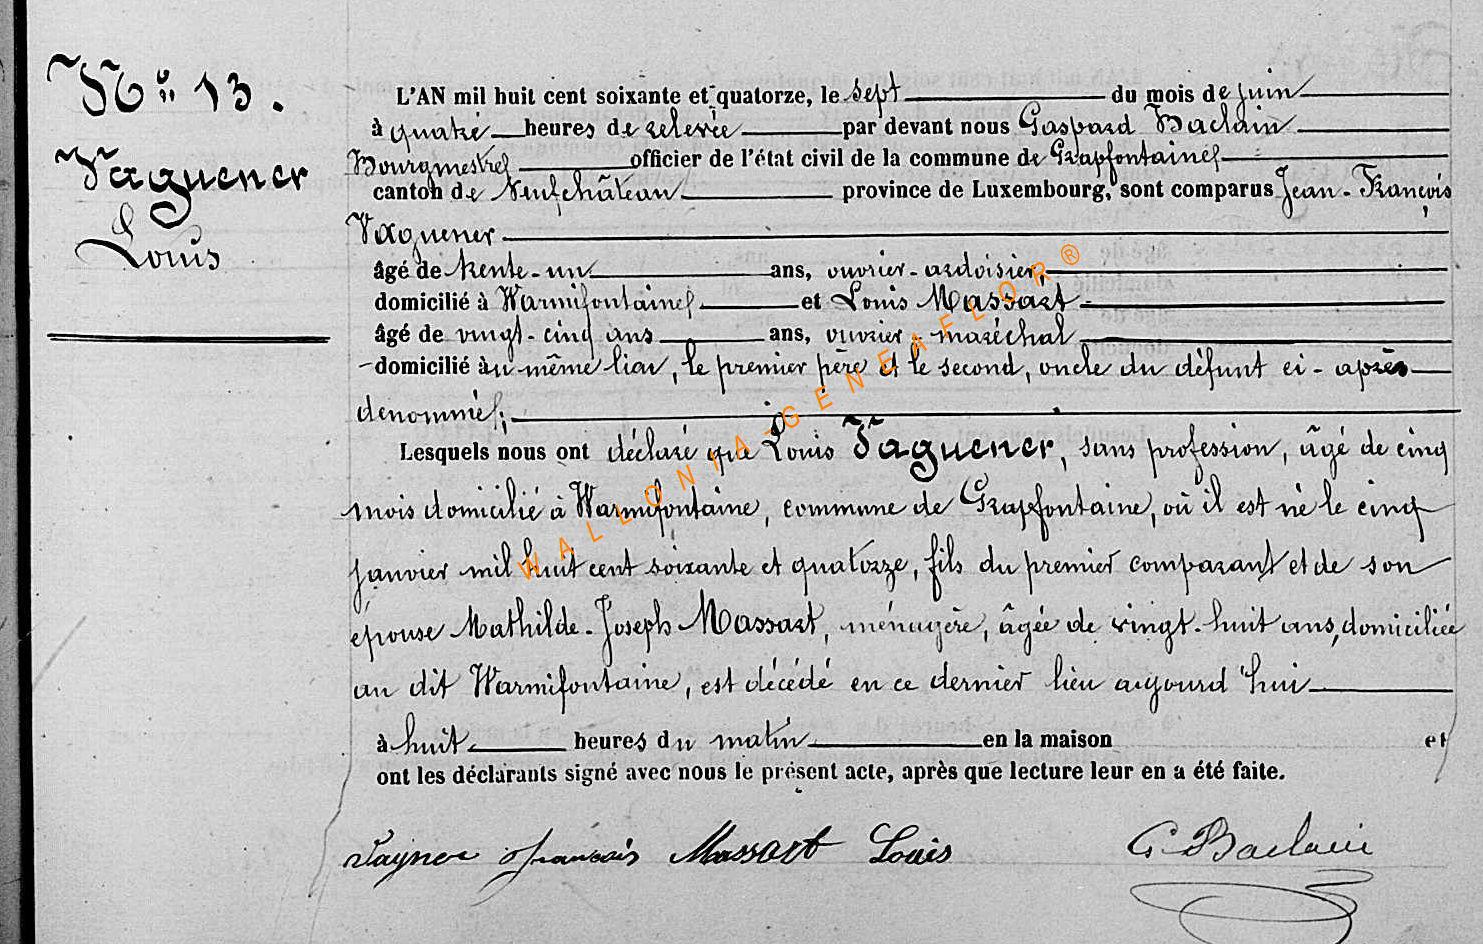 N° 13.
Vaguener
Louis
L'AN mil huit cent soixante et quatorze, le sept du mois de juin
à quatre heures de relevée par devant nous Gaspard Baclain
Bourgmestre officier de l'état civil de la commune de Grapfontaine
canton de Neufchâteau province de Luxembourg, sont comparus Jean-François
Vaguener
âgé de trente-un ans, ouvrier-ardoisier
domicilié à Warmifontaine et Louis Massart
âgé de vingt-cinq ans ans, ouvrier-maréchal
domicilié au même lieu, le premier père et le second, oncle du défunt ci-après
denommé;
Lesquels nous ont déclaré que Louis Vaguener, sans profession, âgé de cinq
mois domicilié à Warmifontaine, commune de Grapfontaine, où il est né le cinq
janvier mil huit cent soixante et quatorze, fils du premier comparant et de son
épouse Mathilde-Joseph Massart, ménagère, âgée de vingt-huit ans, domiciliée
au dit Warmifontaine, est décédé en ce dernier lieu aujourd'hui
à huit heures du matin en la maison et
ont les déclarants signé avec nous le présent acte, après que lecture leur en a été faite.
françois Massart Louis G. Baclain
WALLONIA-GENEAFLOR®